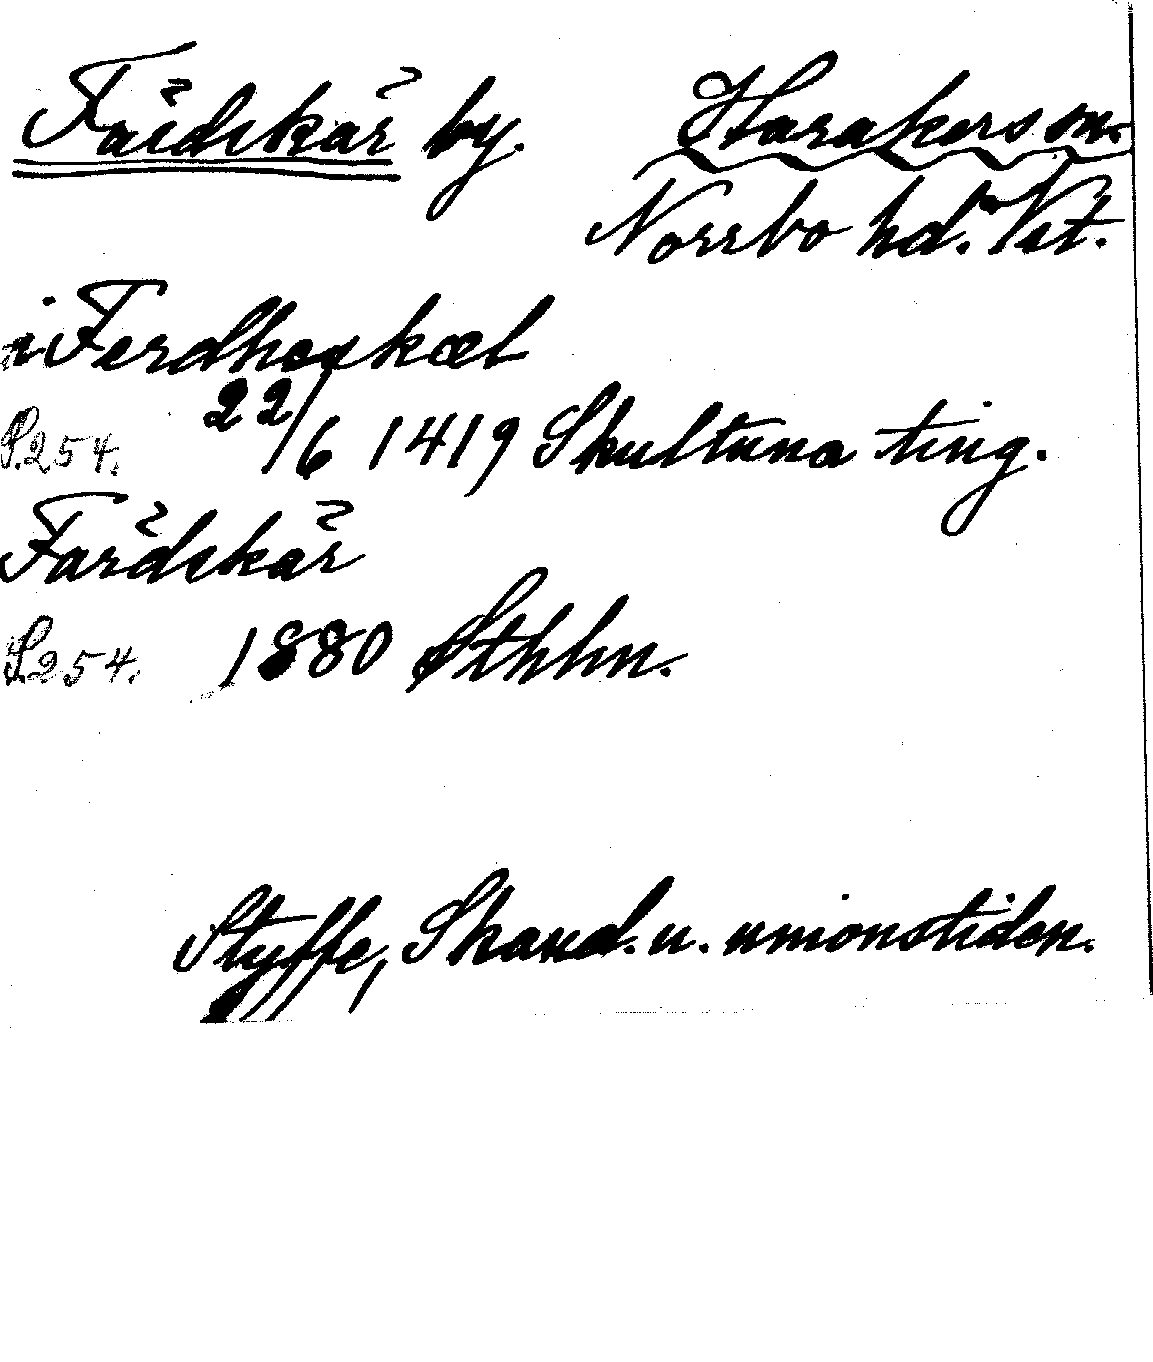 Färdskär by. Harakers sn.
Norrbo hd. Vst.
i Ferdheskæl
S.254. 22/6 1419 Skultuna ting.
Färdskär
S.254. 1880 Sthlm.
Styffe, Skand. u. unionstiden.